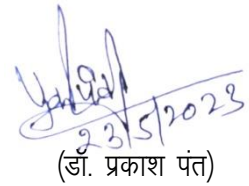 23/5/2023
(डॉ. प्रकाश पंत)